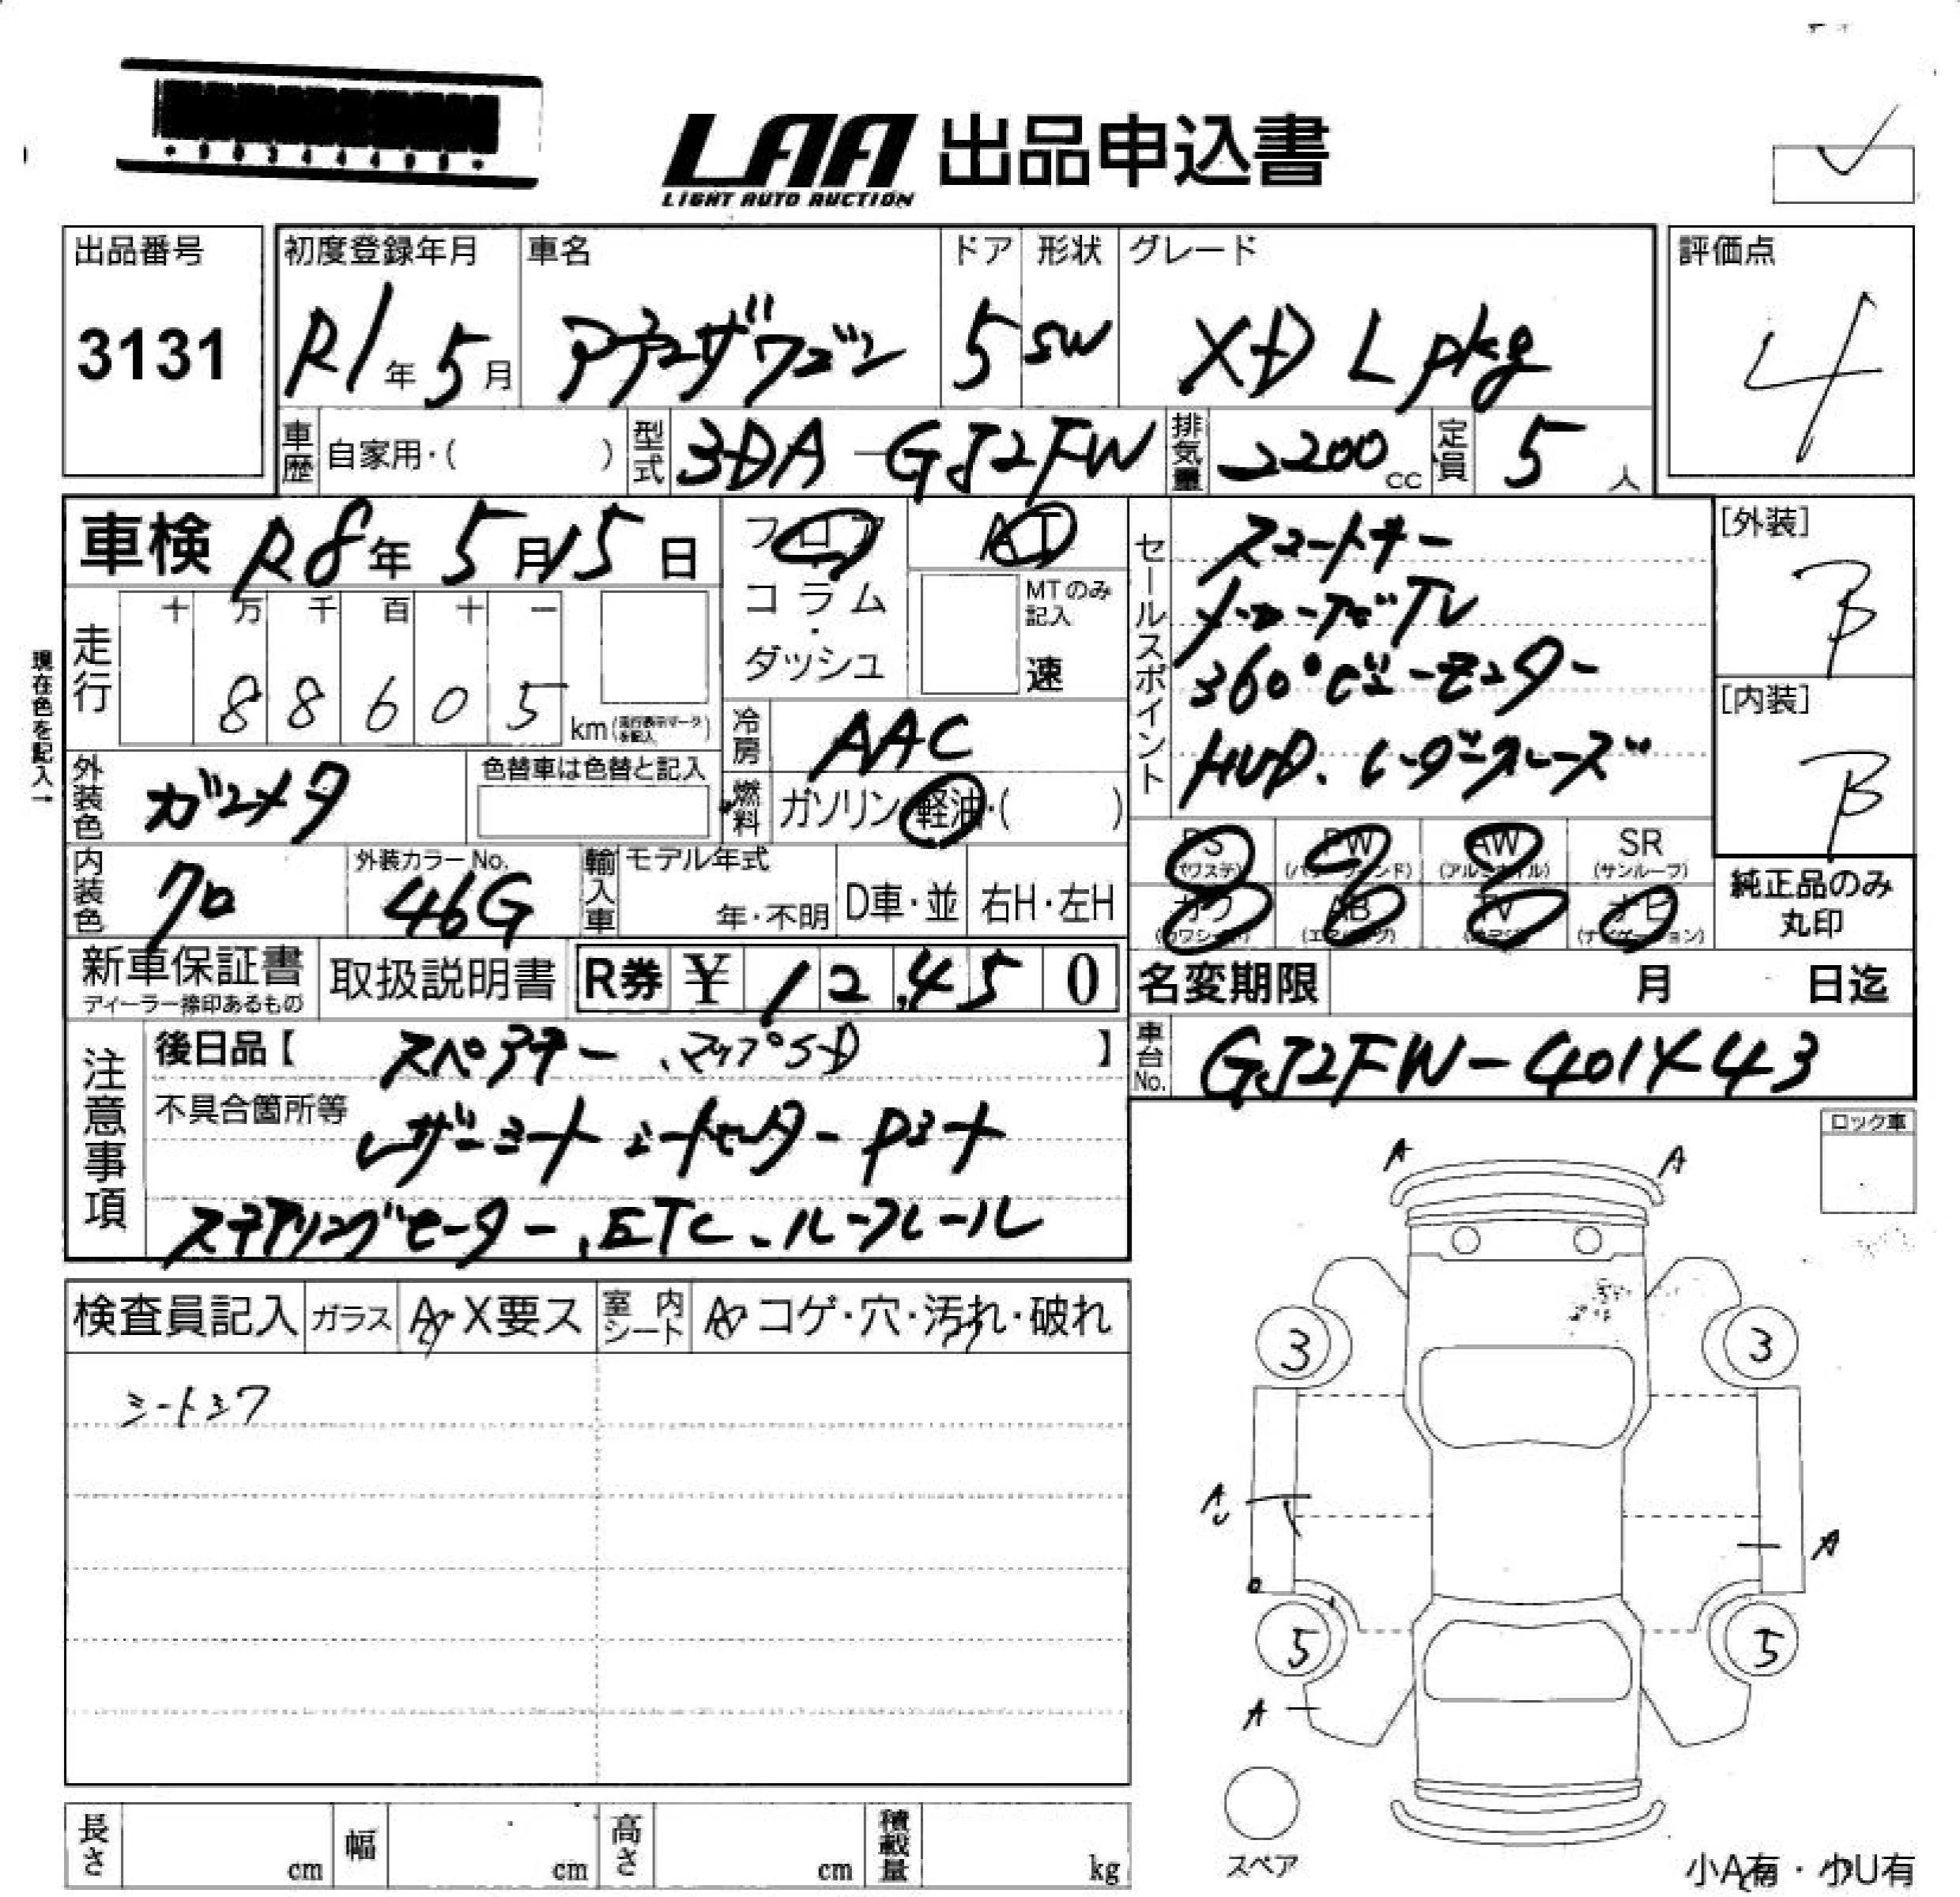 LAA 出品申込書
LIGHT AUTO AUCTION
出品番号 3131
初度登録年月 R1年 5月
車名 アテンザワゴン
ドア 5
形状 SW
グレード XD L pkg
評価点 4
車歴 自家用・( )
型式 3DA-GJ2FW
排気量 2200cc
定員 5人
車検 R8年 5月15日
フロア
コラム
・
ダッシュ
AT
MTのみ記入
速
現在色を記入→
走行 十 万 千 百 十 一
88605 km
冷房 AAC
燃料 ガソリン・軽油・( )
外装色 ガンメタ
色替車は色替と記入
内装色 クロ
外装カラーNo. 46G
輸入車 モデル年式 年・不明
D車・並
右H・左H
セールスポイント
スマートキー
メーカーナビTV
360°ビューモニター
HUD.レーダークルーズ
[外装] B
[内装] B
PS (パワステ)
PW (パワーウインド)
AW (アルミホイル)
SR (サンルーフ)
カワ (カワシート)
AB (エアバッグ)
TV
ナビ (ナビゲーション)
純正品のみ丸印
新車保証書
ディーラー捺印あるもの
取扱説明書
R券 ¥ 12,450
名変期限 月 日迄
車台No. GJ2FW-401443
注意事項
後日品【 スペアキー、マップSD 】
不具合箇所等
レザーシート シートヒーター Pシート
ステアリングヒーター、ETC、ルーフレール
検査員記入
ガラス A・X要ス
室内シート A・コゲ・穴・汚れ・破れ
シートシワ
ロック車
A A
3 3
A
U
A
5 5
A
スペア
長さ cm
幅 cm
高さ cm
積載量 kg
小A有・小U有